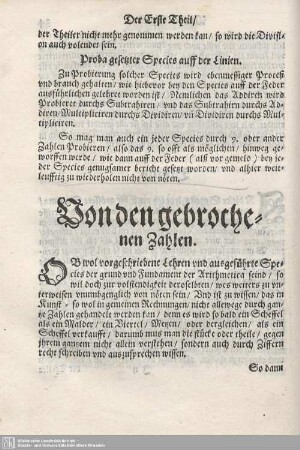 Der Erste Theil/
der Theiler nicht mehr genommen werden kan/ so wird die Divisi-
on auch volendet sein.
Proba gesetzter Species auff der Linien.
Zu Probierung solcher Species wird ebenmessiger Proceß
vnd brauch gehalten/ wie hiebevor bey den Species auff der Feder
außführlichen gelehret worden ist/ Nemlichen das Addiren wird
Probieret durchs Subtrahiren/ vnd das Subtrahiren durchs Ad-
diren/ Multipliciren durchs Dividiren/ vn Dividiren durchs Mul-
tipliciren.
So mag man auch ein jeder Species durch 9. oder ander
Zahlen Probieren/ also das 9. so offt als möglichen/ hinweg ge-
worffen werde/ wie dann auff der Feder (alß vor gemeld) bey je-
der Species genugsamer bericht gesetzt worden/ vnd alhier weit-
leufftig zu wiederholen nicht von nöten.
Von den gebroche-
nen Zahlen.
OB wol vorgeschriebene Lehren vnd außgeführte Spe-
cies der grund vnd Fundament der Arithmetica seind/ so
wil doch zur volstendigkeit derselben/ wes weiters zu vn-
terweisen vnumbgenglich von nöten sein/ Vnd ist zu wissen/ das in
Kunst- so wol in gemeinen Rechnungen/ nicht allewege durch gan-
tze Zahlen gehandelt werden kan/ denn es wird so bald ein Scheffel
als ein Malder/ ein Viertel/ Metzen/ oder dergleichen/ als ein
Scheffel verkaufft/ darumb muß man die stücke oder theile/ gegen
ihrem gantzem nicht allein verstehen/ sondern auch durch Ziffern
recht schreiben vnd außzusprechen wissen.
So dann